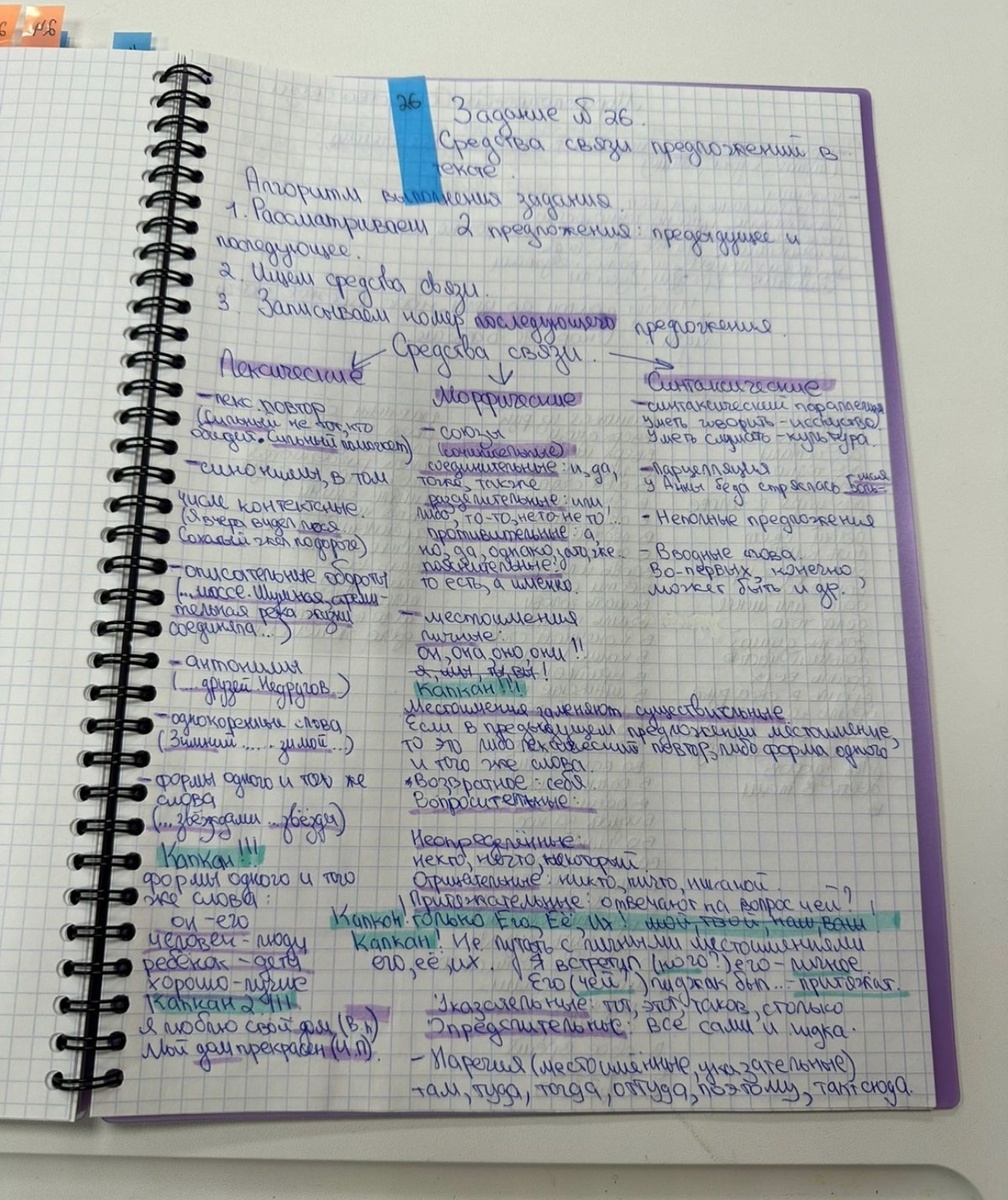 26
Задание №26.
Средства связи предложений в
тексте.
Алгоритм выполнения задания.
1. Рассматриваем 2 предложения: предыдущее и
последующее.
2. Ищем средства связи.
3. Записываем номер последующего предложения.
Средства связи.
Лексические
- лекс. повтор
(Сильный не тот, кто
обидит. Сильный поможет)
- синонимы, в том
числе контекстные.
(Я вчера видел лося
Сохатый шёл по дороге)
- описательные обороты
(...шоссе. Шумная, стреми-
тельная река жизни
соединяла...)
- антонимия
(...друзей Недругов...)
- однокоренные слова
(Зимний..... зимой...)
- формы одного и того же
слова
(...звёздами ...звёзды)
Капкан!!!
формы одного и того
же слова:
он - его
человек - люди
ребёнок - дети
хорошо - лучше
Капкан 2!!!
Я люблю свой дом (В.п)
Мой дом прекрасен (И.п).
Морфические
- союзы
(сочинительные)
соединительные: и, да,
тоже, также
разделительные: или
либо, то-то, не то-не то!
противительные: а,
но, да, однако, зато, же.
пояснительные:
то есть, а именно.
- местоимения
личные:
он, она, оно, они!!
я, мы, ты, вы!
Капкан!!!
Местоимения заменяют существительные
Если в предыдущем предложении местоимение,
то это либо лексический повтор, либо форма одного
и того же слова.
Возвратное: себя.
Вопросительные:
Неопределённые:
некто, нечто, некоторый.
Отрицательные: никто, ничто, никакой.
Притяжательные: отвечают на вопрос чей?
Капкан! только Его, Её, Их! мой, твой, наш, ваш
Капкан! Не путать с личными местоимениями
его, её, их. Я встретил (кого?) его - личное
Его (чей?) пиджак был...- притяжат.
Указательные: тот, этот, таков, столько
Определительные: все сами и
- Наречия (местоимённые, указательные)
там, туда, тогда, оттуда, поэтому, так, сюда.
Синтаксические
- синтаксический параллелизм
Уметь говорить - исскуство
Уметь слушать - культура.
- Парцелляция
У Анны беда стряслась. Боль-
шая
- Неполные предложения
- Вводные слова.
Во-первых, конечно,
может быть и др.